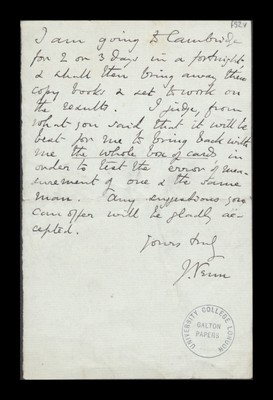 152v
I am going to Cambridge
for 2 or 3 days in a fortnight,
& shall then bring away these
copy books & set to work on
the results. I judge, from
what you said, that it will be
best for me to bring back with
me the whole box of cards in
order to test the error of mea-
surement of one & the same
man. Any suggestions you
can offer will be gladly ac-
cepted.
Yours truly
J. Venn
UNIVERSITY COLLEGE LONDON
GALTON
PAPERS